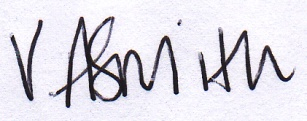 V. ASmith